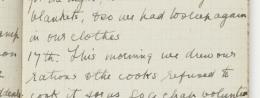 blankets, & so we had to sleep again
in our clothes
17th. This morning we drew our
rations & the cooks refused to
cook it for us so a chap volunte